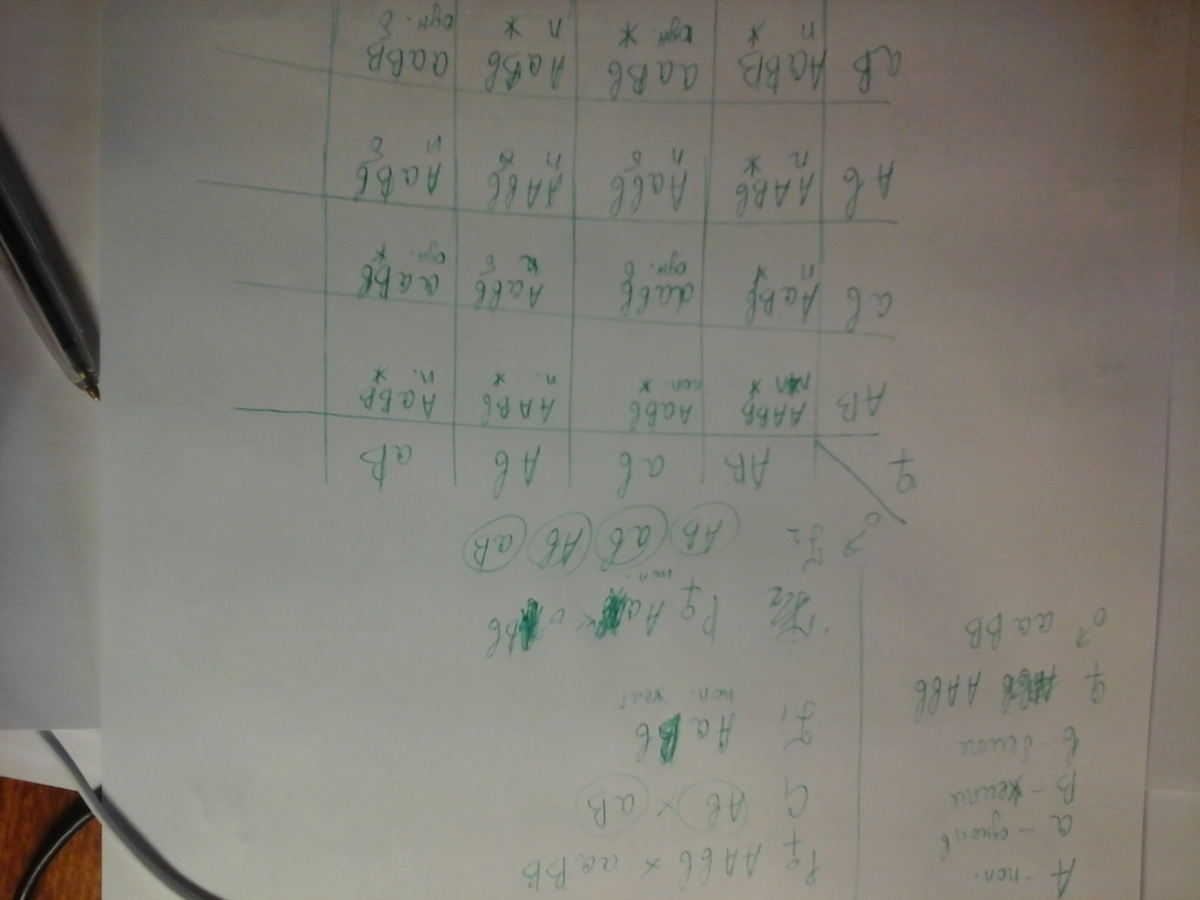 A - пол.
В - желтые
b - белые
♀ AAbb
♂ aaBB
P ♀ AAbb × aaBB
G Ab × aB
F₁ AaBb
пол. желт
P ♀ Aa × Bb
пол.
F₂ AB ab Ab aB
♂
♀ AB ab Ab aB
AB AABB AaBb AABb AaBB
* пол. * п. * п. *
ab AaBb aabb Aabb aaBb
п * одн. б п б одн. *
Ab AABb Aabb AAbb AaBb
п * п б п б п б
aB AaBB aaBb AaBb aaBB
п * одн. * п * одн. б